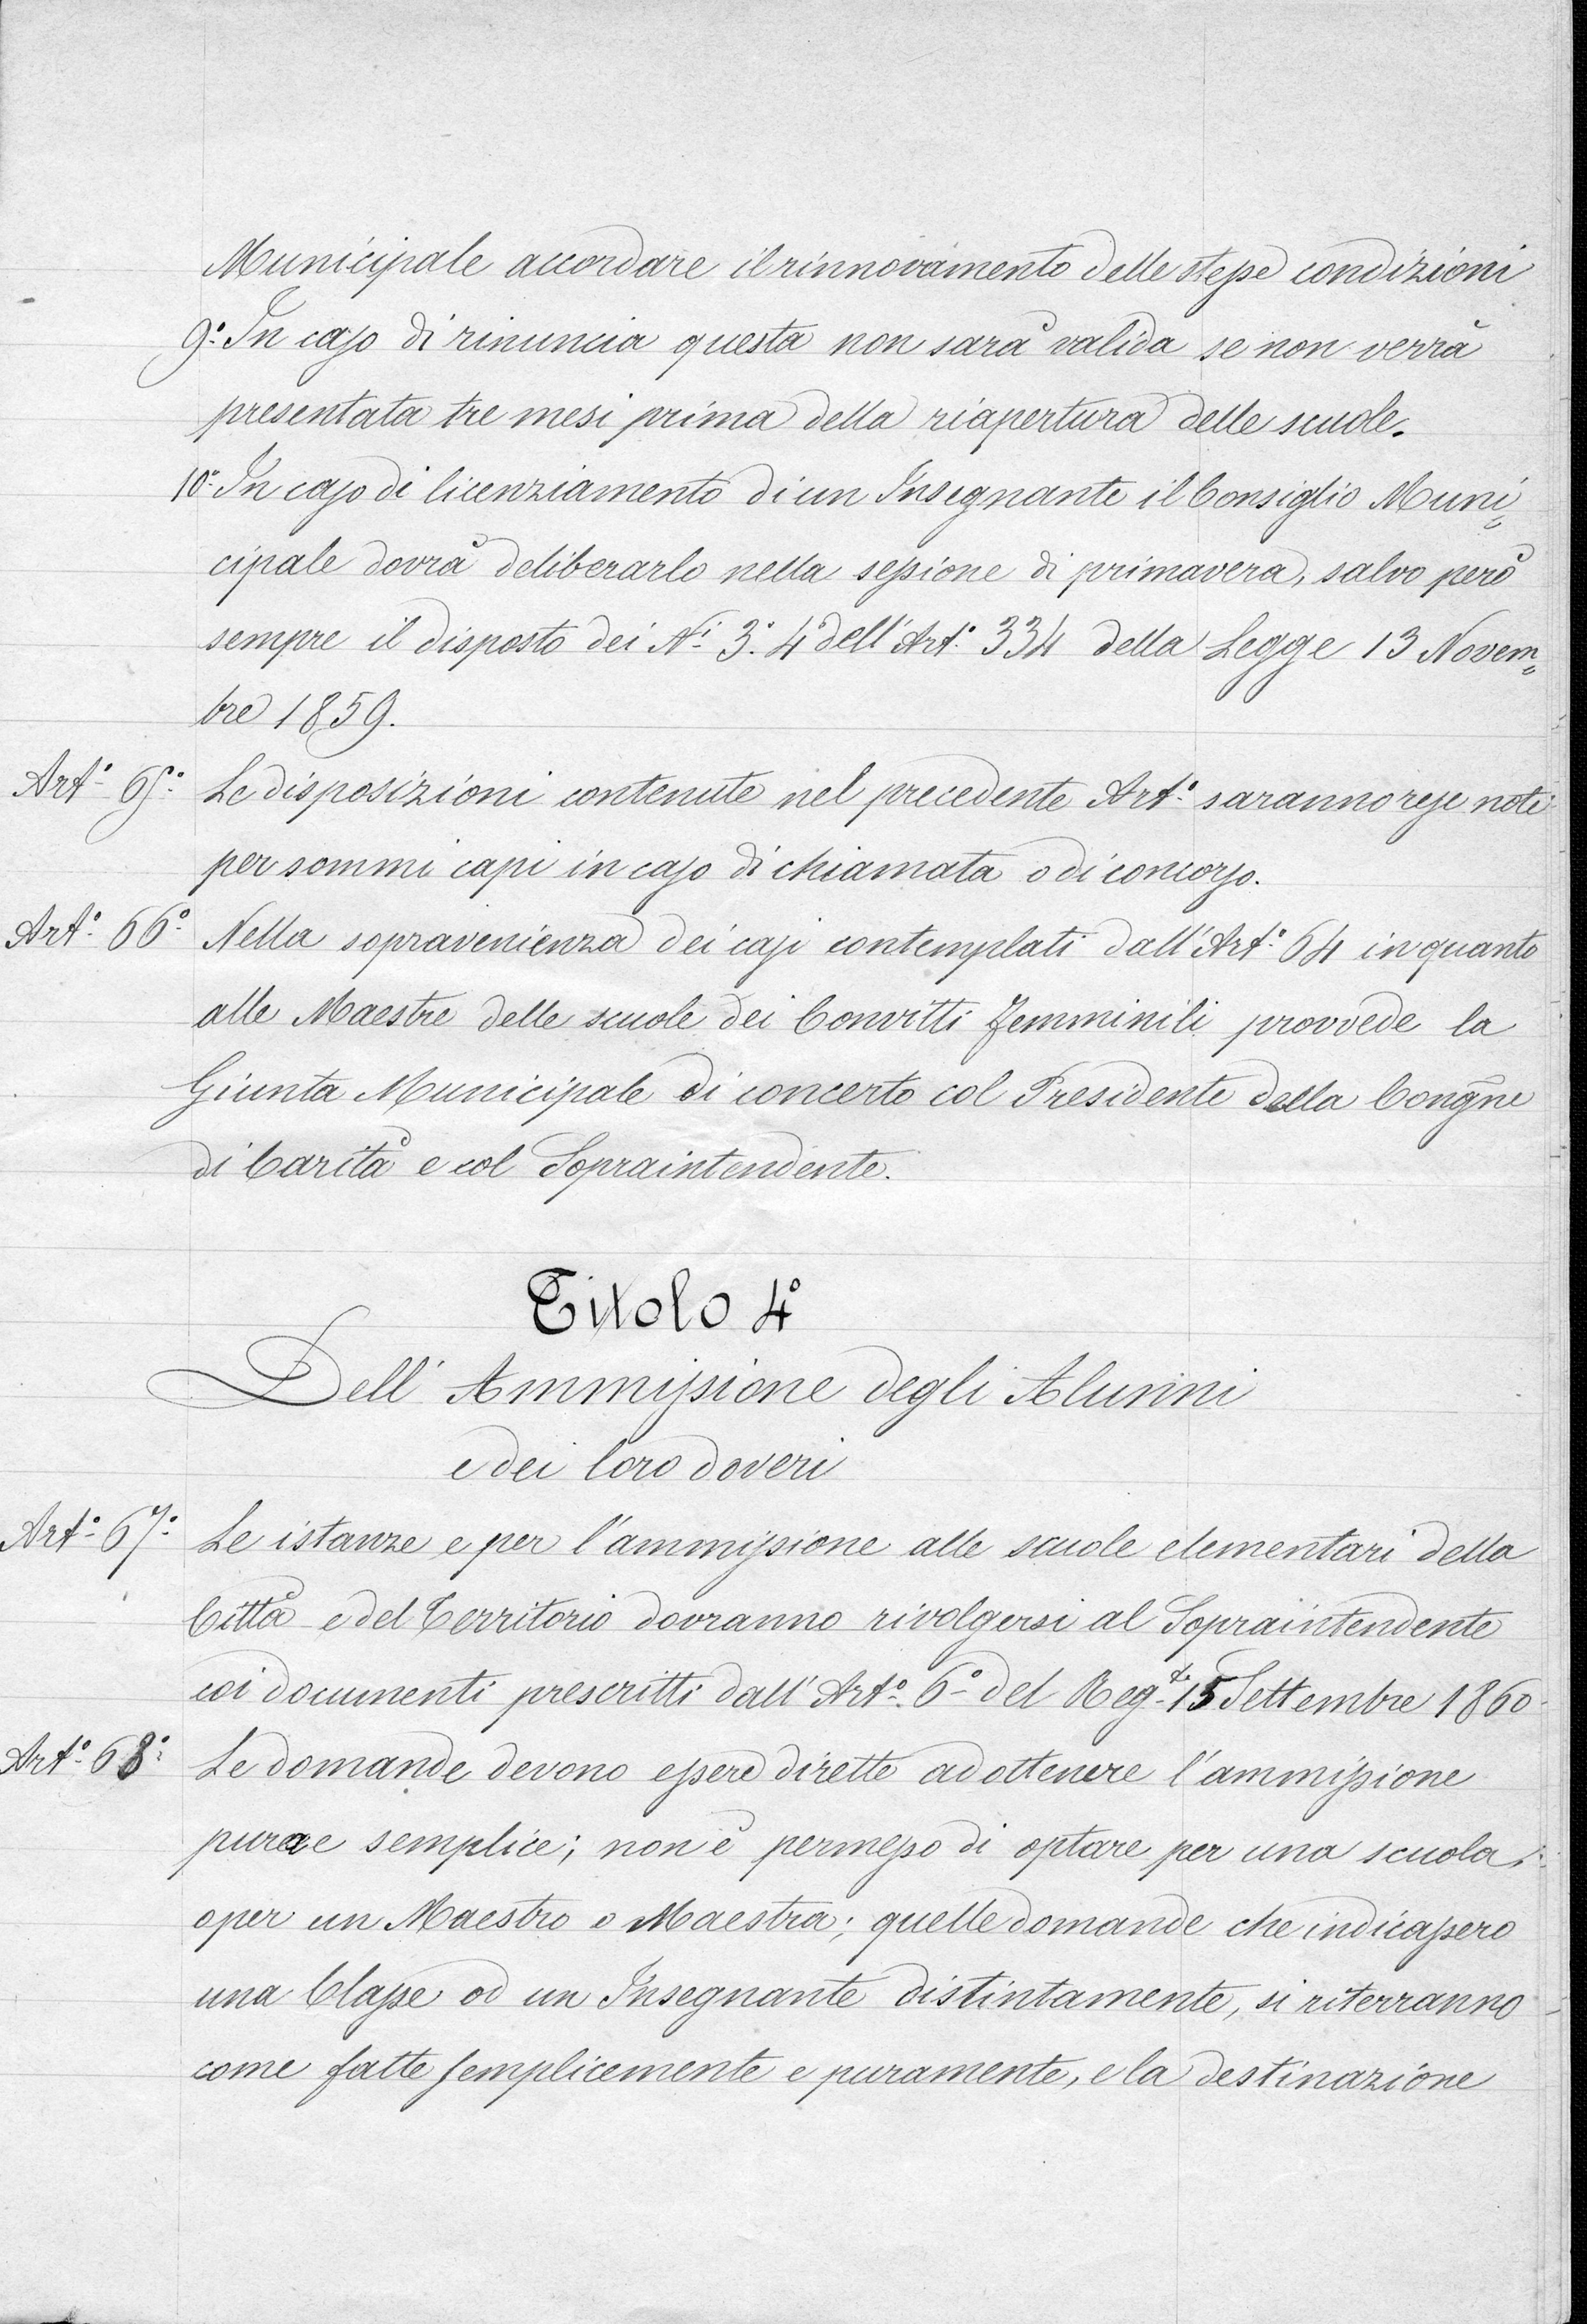 Municipale accordare il rinnovamento delle stesse condizioni
9.° In caso di rinuncia questa non sarà valida se non verrà
presentata tre mesi prima della riapertura delle scuole.
10.° In caso di licenziamento di un Insegnante il Consiglio Muni„
cipale dovrà deliberarlo nella sessione di primavera, salvo però
sempre il disposto dei N.i 3.° 4° dell'Art.° 334 della Legge 13 Novem„
bre 1859.
Art.° 65.° Le disposizioni contenute nel precedente Art.° saranno rese note
per sommi capi in caso di chiamata o di concorso.
Art.° 66.° Nella sopravenienza dei casi contemplati dall'Art.° 64 in quanto
alle Maestre delle scuole dei Convitti Femminili provvede la
Giunta Municipale di concerto col Presidente della Congñe
di Carità e col Sopraintendente.
Titolo 4°
Dell'Ammissione degli Alunni
e dei loro doveri
Art.° 67.° Le istanze e per l'ammissione alle scuole elementari della
Città e del Territorio dovranno rivolgersi al Sopraintendente
coi documenti prescritti dall'Art.° 6.° del Reg.to 15 Settembre 1860
Art.° 68.° Le domande devono essere dirette ad ottenere l'ammissione
pura e semplice; non è permesso di optare per una scuola,
o per un Maestro o Maestra; quelle domande che indicassero
una Classe od un Insegnante distintamente, si riterranno
come fatte semplicemente e puramente, e la destinazione